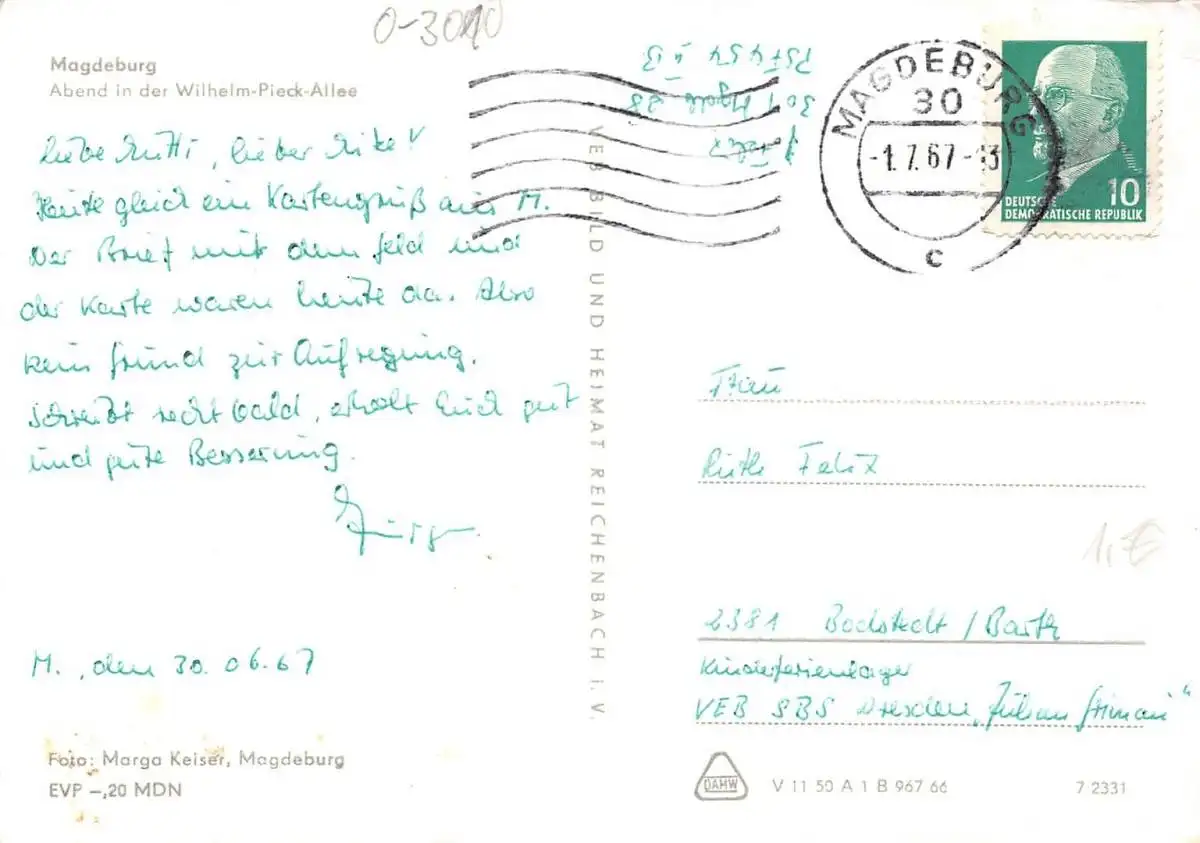 0-3010
Magdeburg
Abend in der Wilhelm-Pieck-Allee
Liebe Mutti, lieber Mike!
Heute gleich ein Kartengruß aus M.
Der Brief mit dem Geld und
der Karte waren heute da. Also
kein Grund zur Aufregung.
Schreibt recht bald, erholt Euch gut
und gute Besserung.
Jürgen
M., den 30.06.67
Foto: Marga Keiser, Magdeburg
EVP –,20 MDN
VEB BILD UND HEIMAT REICHENBACH I. V.
J. Felix
301 Mgdb 28
PSF 454 II B
MAGDEBURG
30
-1.7.67-13
c
10
DEUTSCHE
DEMOKRATISCHE REPUBLIK
Frau
Ruth Felix
1,-€
2381 Bodstedt/Barth
Kinderferienlager
VEB SBS Dresden „Julian Grimau"
DAMW
V 11 50 A 1 B 967 66
7 2331